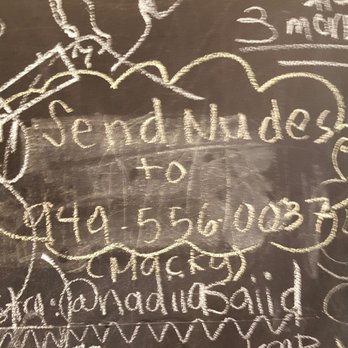 3 more
Send Nudes
to
949.556.0033
(Macky)
@nadiaSaiid